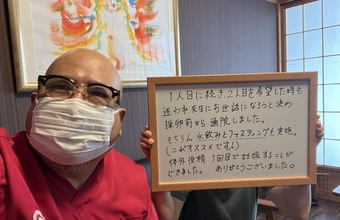 1人目に続き2人目を希望した時も
迷わず先生にお世話になろうと決め
採卵前から通院しました。
もちろん水飲みとファスティングも実施。
(これオススメです。)
体外受精1回目で妊娠することが
できました。ありがとうございました。